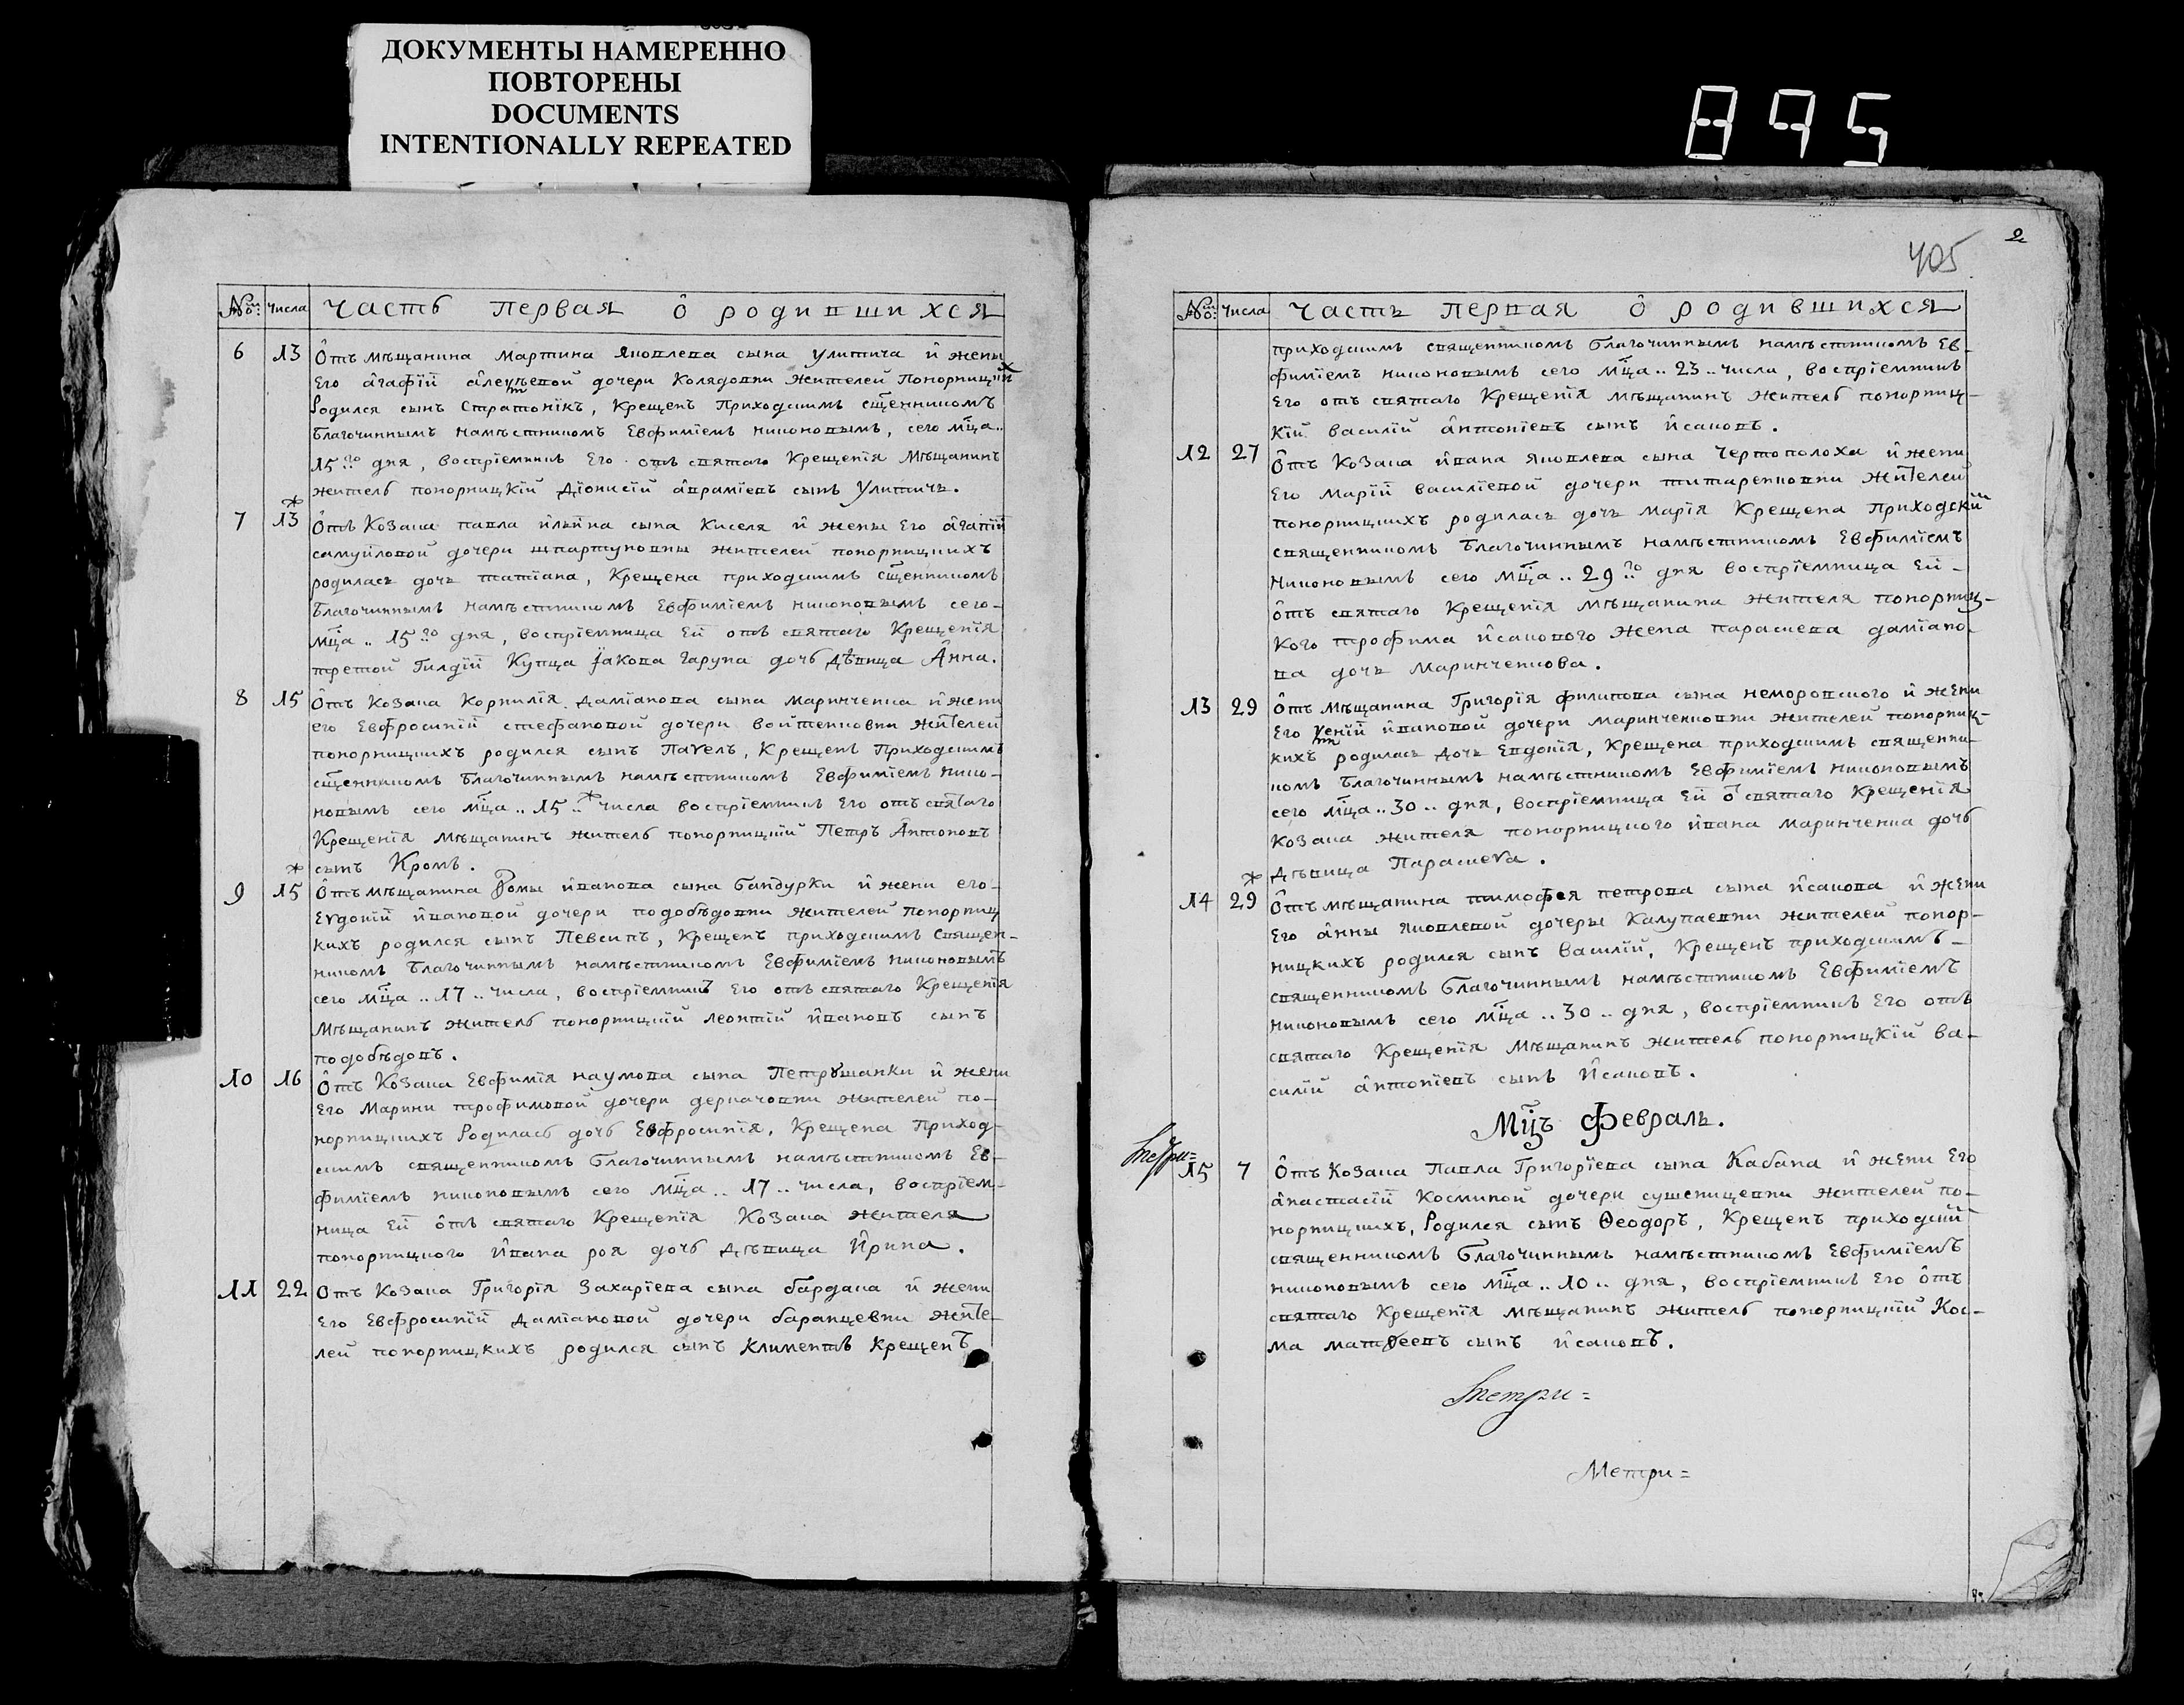 ДОКУМЕНТЫ НАМЕРЕННО
ПОВТОРЕНЫ
DOCUMENTS
INTENTIONALLY REPEATED
895
405
2
№ Числа Часть первая о родившихся
6 13 Отъ мѣщанина Мартина Яковлева сына Улитича и жены
Его Агафіи дочери Колядовки жителей Понорницких
Родился сынъ Стратонікъ, Крещенъ Приходскимъ сщенникомъ
Благочиннымъ намѣстникомъ Евфиміемъ Никоновымъ, сего мца..
15го дня, воспріемникъ Его отъ святаго Крещенія Мѣщанинъ
житель понорницкій Діонисій Авраміевъ сынъ Улитичъ.
7 13 Отъ Козака павла ильина сына Киселя и жены Его Агапіи
самуйловой дочери шпартуновны жителей понорницкихъ
родилась дочь татіана, Крещена приходскимъ сщенникомъ
Благочиннымъ намѣстникомъ Евфиміемъ никоновымъ сего-
мца .. 15го дня, воспріемница Ей отъ святаго Крещенія
третой Гилдіи Купца Іакова Гаруна дочь дѣвица Анна.
8 15 Отъ Козака Корнилія Даміанова сына Маринченка и жени
его Евфросиніи стефановой дочери войтенковни жителей
понорницкихъ родился сынъ Павелъ, Крещенъ Приходскимъ
сщенникомъ Благочиннымъ намѣстникомъ Евфиміемъ Нико-
новымъ сего мца .. 15 .. числа воспріемникъ Его отъ святаго
Крещенія мѣщанинъ житель понорницкій Петръ Антоновъ
сынъ Кромъ.
9 15 Отъ мѣщанина Фомы иванова сына бандурки и жени его-
Евдокіи ивановой дочери подобѣдовни жителей понорниц
кихъ родился сынъ Певсипъ, Крещенъ приходскимъ священ-
никомъ Благочиннымъ намѣстникомъ Евфиміемъ никоновымъ
сего мца .. 17 .. числа, воспріемникъ Его отъ святаго Крещенія
мѣщанинъ житель понорницкій леонтій ивановъ сынъ
подобѣдовъ.
10 16 Отъ Козака Евфимія наумова сына Петрушанки и жени
Его Марини трофимовой дочери деркачовни жителей по-
норницкихъ Родилась дочь Евфросинія, Крещена Приход-
скимъ священникомъ Благочиннымъ намѣстникомъ Ев-
фиміемъ никоновымъ сего мца .. 17 .. числа, воспріем-
ница Ей отъ святаго Крещенія Козака жителя
понорницкого ивана роя дочь дѣвица Ирина.
11 22 Отъ Козака Григорія Захаріева сына бардака и жени
Его Евфросиніи Даміановой дочери баранцевни жите-
лей понорницкихъ родился сынъ Климентъ Крещенъ
№ Числа Часть первая о родившихся
приходскимъ священникомъ благочиннымъ намѣстникомъ Ев-
фиміемъ никоновымъ сего мца .. 23 .. числа, воспріемникъ
Его отъ святаго Крещенія мѣщанинъ житель понорниц-
кій василій антоніевъ сынъ исаковъ.
12 27 Отъ Козака ивана Яковлева сына Чертополоха и жени
Его Маріи василіевой дочери титаренковни жителей
понорницкихъ родилась дочь Марія Крещена приходскимъ
священникомъ Благочиннымъ намѣстникомъ Евфиміемъ
Никоновымъ сего мца .. 29го дня воспріемница Ей-
отъ святаго Крещенія мѣщанина жителя понорниц-
кого трофима исакового жена параскева даміано-
ва дочь Маринченкова.
13 29 Отъ мѣщанина Григорія филипова сына неморовского и жени
Его ивановой дочери маринченковни жителей понорниц-
кихъ родилась дочь Евдокія, Крещена приходскимъ священни-
комъ Благочиннымъ намѣстникомъ Евфиміемъ никоновымъ
сего мца .. 30 .. дня, воспріемница Ей от святаго Крещенія
козака жителя понорницкого ивана маринченка дочь
дѣвица Параскева.
14 29 Отъ мѣщанина тимофея петрова сына исакова и жени
Его анны яковлевой дочеры Калупаевни жителей понор-
ницкихъ родился сынъ василій, Крещенъ приходскимъ-
священникомъ благочиннымъ намѣстникомъ Евфиміемъ
никоновымъ сего мца .. 30 .. дня, воспріемникъ Его отъ
святаго Крещенія мѣщанинъ житель понорницкій ва-
силій антоніевъ сынъ исаковъ.
Мцъ Февраль.
15 7 Отъ Козака Павла Григоріева сына Кабана и жени Его
анастасіи Косминой дочери сушеницевни жителей по-
норницкихъ, Родился сынъ Ѳеодоръ, Крещенъ приходским
священникомъ благочиннымъ намѣстникомъ Евфиміемъ
никоновымъ сего мца .. 10 .. дня, воспріемникъ Его отъ
святаго Крещенія мѣщанинъ житель понорницкій Кос-
ма матѳеевъ сынъ исаковъ.
Метри=